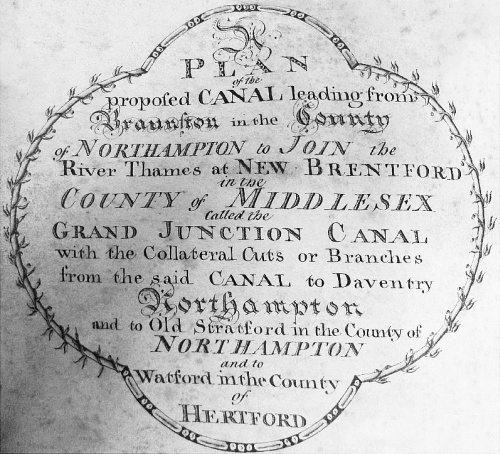 A
PLAN
of the
proposed CANAL leading from
Braunston in the County
of NORTHAMPTON to JOIN the
River Thames at NEW BRENTFORD
in the
COUNTY of MIDDLESEX
Called the
GRAND JUNCTION CANAL
with the Collateral Cuts or Branches
from the said CANAL to Daventry
Northampton
and to Old Stratford in the County of
NORTHAMPTON
and to
Watford in the County
of
HERTFORD